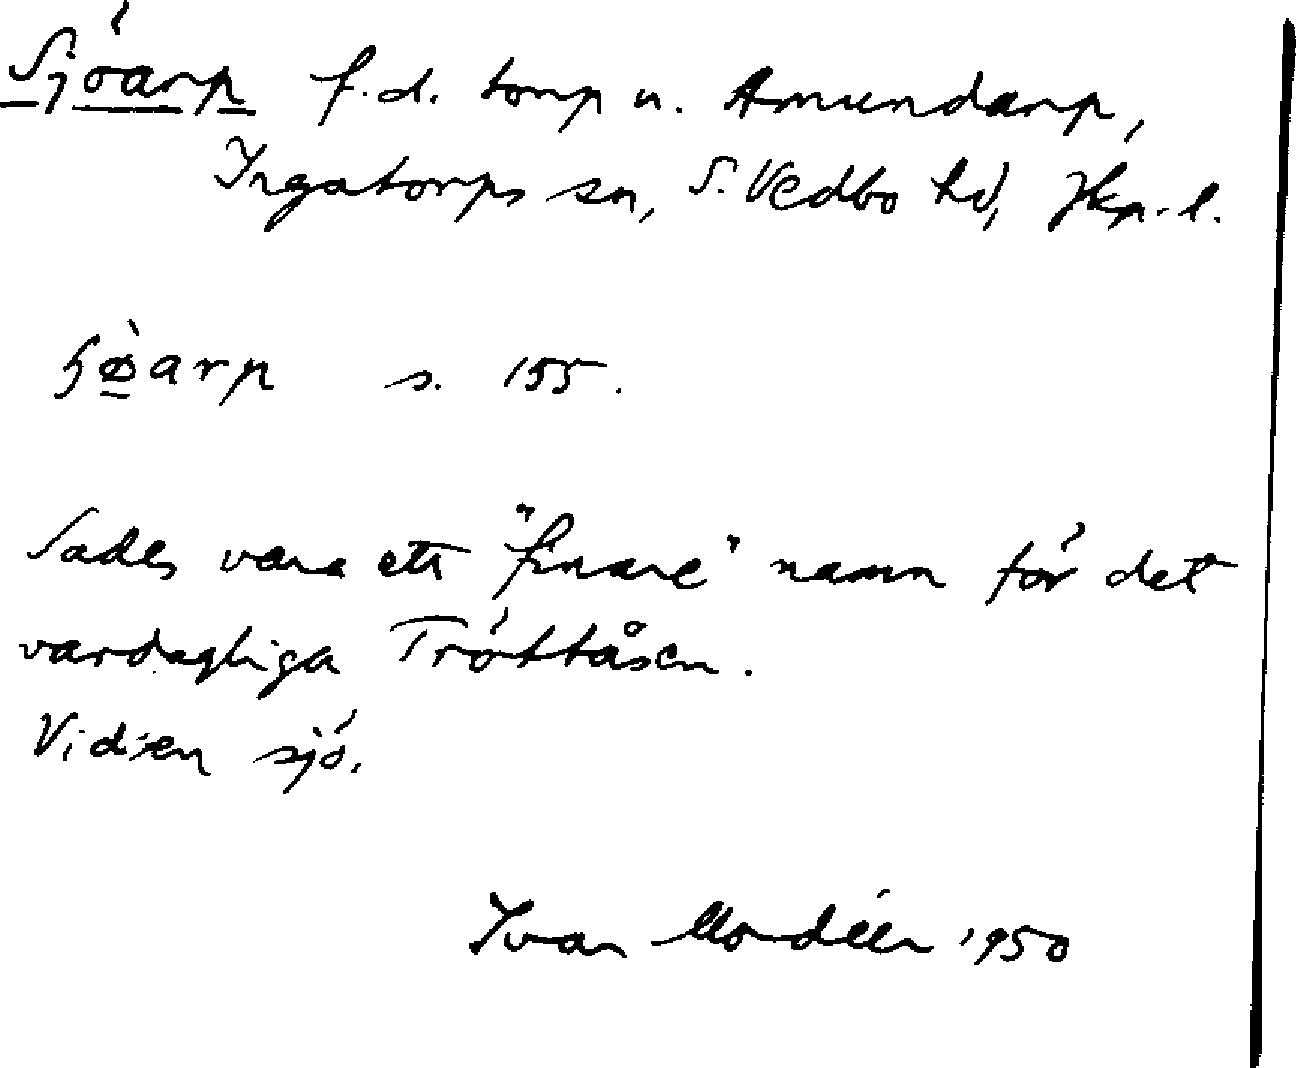 Sjöarp f.d. torp u. Amundarp,
Ingatorps sn, S. Vedbo hd, Jkp. l.
ɧø̀arp s. 155.
Sades vara ett "finare" namn för det
vardagliga Tröttåsen.
Vid en sjö.
Ivar Modéer 1950